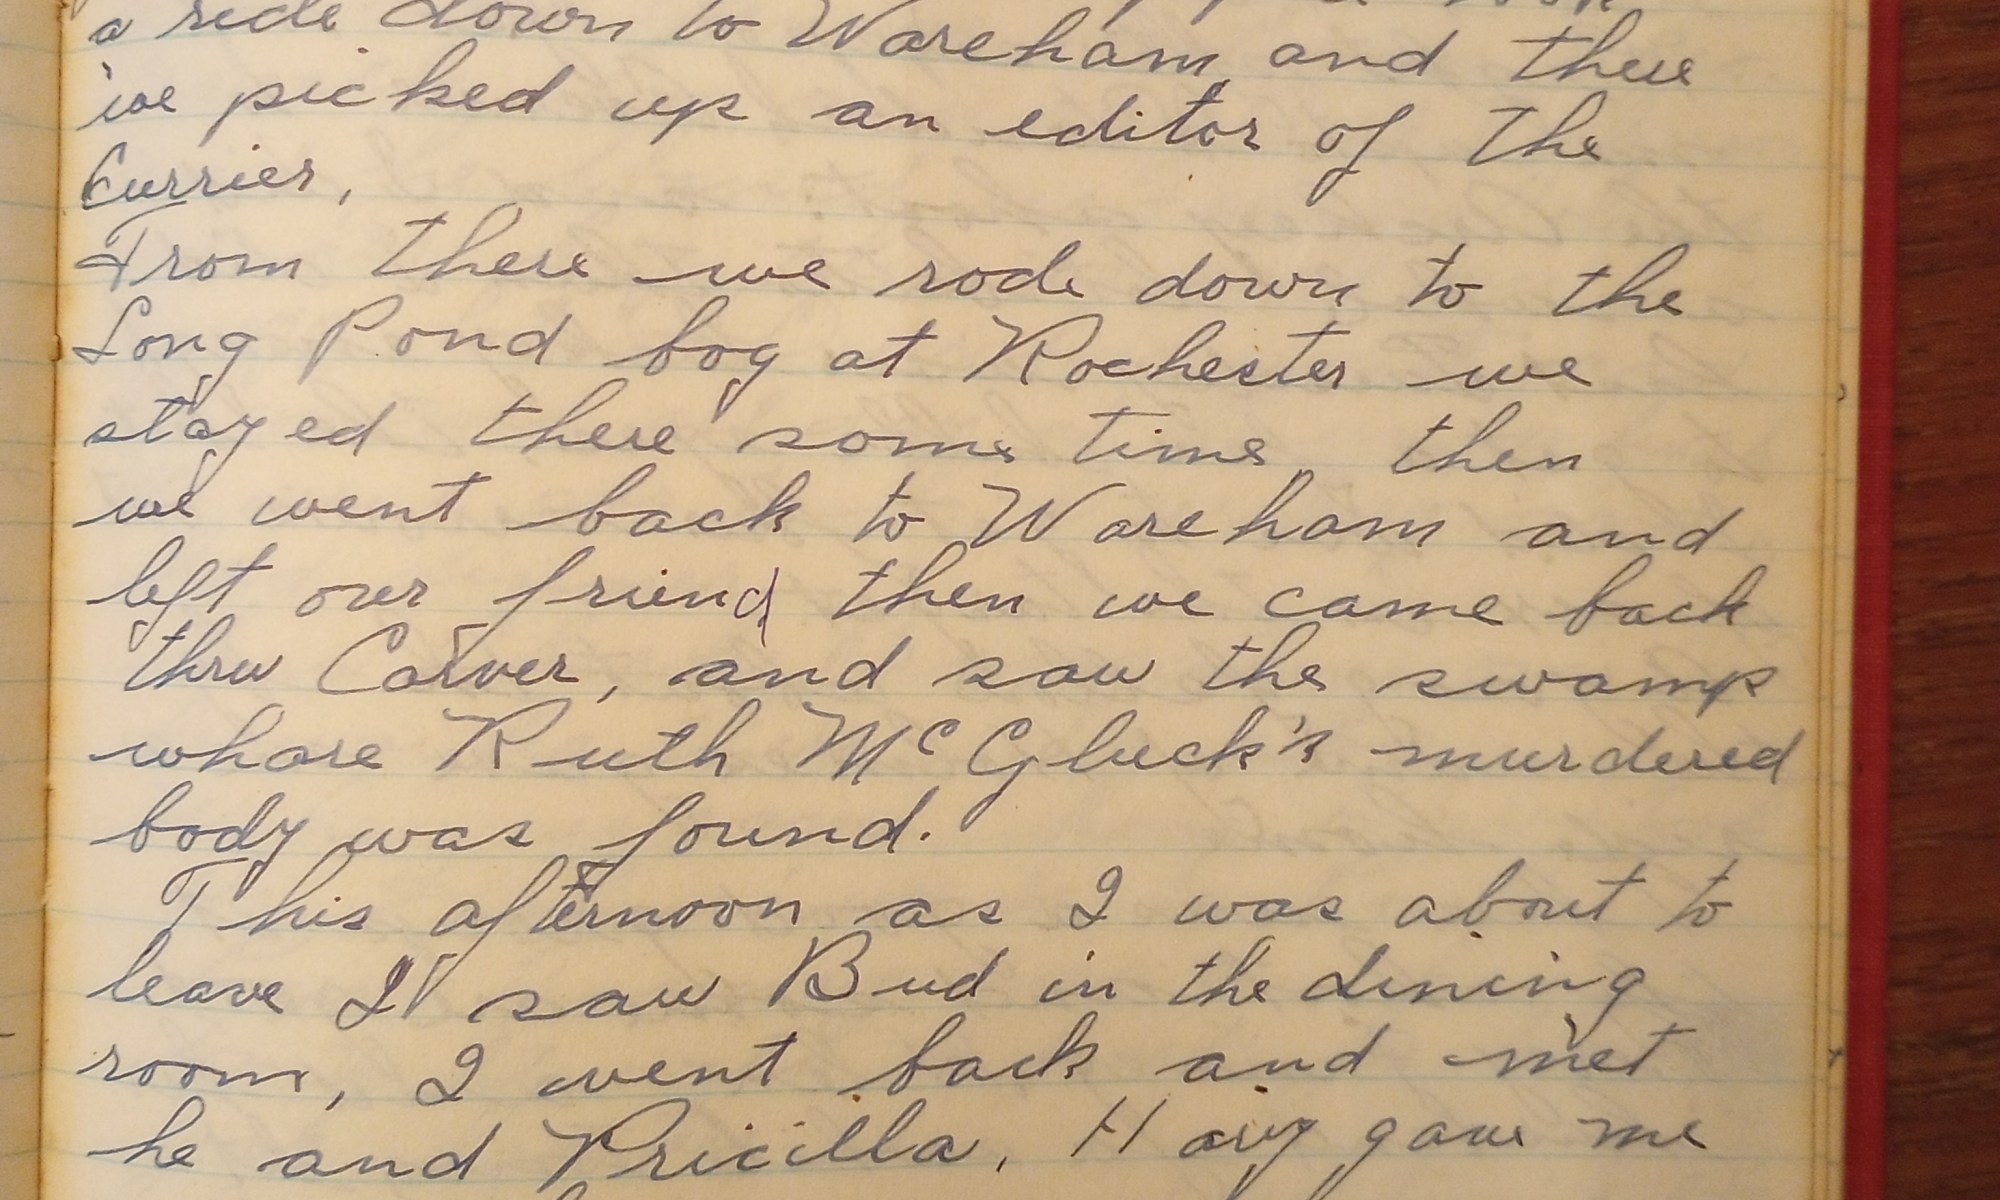 a ride down to Wareham, and there
we picked up an editor of the
Currier,
From there we rode down to the
Long Pond bog at Rochester we
stayed there some time, then
we went back to Wareham and
left our friend, then we came back
thru Carver, and saw the swamp
whare Ruth McGluck's murdered
body was found.
This afternoon as I was about to
leave I saw Bud in the dining
room, I went back and met
he and Pricilla. gave me